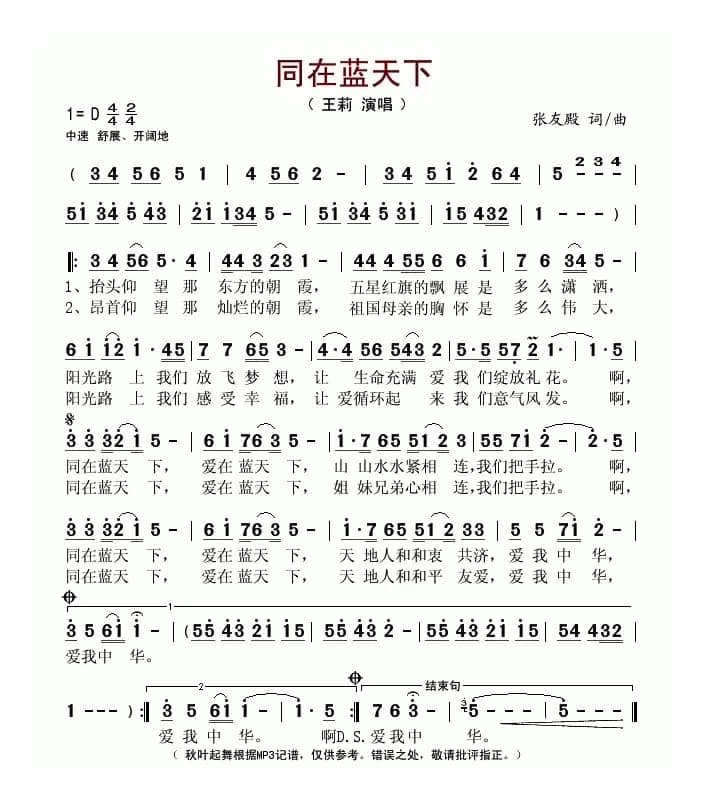 同在蓝天下
（ 王莉 演唱 ）
1= D 4/4 2/4
张友殿 词/曲
中速 舒展、开阔地
( 3 4 5 6 5 1 | 4 5 6 2 - | 3 4 5 1 2 6 4 | 5 - - - 2 3 4 |
5 1 3 4 5 4 3 | 2 1 1 3 4 5 - | 5 1 3 4 5 3 1 | 1 5 4 3 2 | 1 - - - ) |
‖: 3 4 5 6 5 · 4 | 4 4 3 2 3 1 - | 4 4 4 5 5 6 6 1 | 7 6 3 4 5 - |
1、抬头仰 望 那 东方的朝 霞， 五星红旗的飘 展 是 多 么 潇 洒，
2、昂首仰 望 那 灿烂的朝 霞， 祖国母亲的胸 怀 是 多 么 伟 大，
6 1 1 2 1 · 4 5 | 7 7 6 5 3 - | 4 · 4 5 6 5 4 3 | 5 · 5 5 5 7 2 1 - | 1 · 5 |
阳光路 上 我们 放 飞 梦 想，让 生命充满 爱 我 们绽放礼 花。 啊，
阳光路 上 我们 感 受 幸 福，让 爱循环起 来 我 们意气风 发。 啊，
3 3 3 2 1 5 - | 6 1 7 6 5 3 - | 1 · 7 6 5 5 1 2 3 | 5 5 7 1 2 - | 2 · 5 |
同在蓝天 下， 爱在 蓝天 下， 山 山水水紧相 连，我们把手拉。 啊，
同在蓝天 下， 爱在 蓝天 下， 姐 妹兄弟心相 连，我们把手拉。 啊，
3 3 3 2 1 5 - | 6 1 7 6 5 3 - | 1 · 7 6 5 5 1 2 3 3 | 5 5 7 1 2 - |
同在蓝天 下， 爱在 蓝天 下， 天 地人和和衷 共济，爱 我 中 华，
同在蓝天 下， 爱在 蓝天 下， 天 地人和和平 友爱，爱 我 中 华，
1
3 5 6 1 1 - | ( 5 5 4 3 2 1 1 5 | 5 5 4 3 2 1 1 5 | 5 4 5 4 3 2 |
爱我中 华。
2 结束句
1 - - - ) :‖ 3 5 6 1 1 - | 1 · 5 :‖ 7 6 3 - | 5 - - - | 5 - - - ‖
爱 我 中 华。 啊D.S. 爱 我 中 华。
（ 秋叶起舞根据MP3记谱，仅供参考。错误之处，敬请批评指正。）